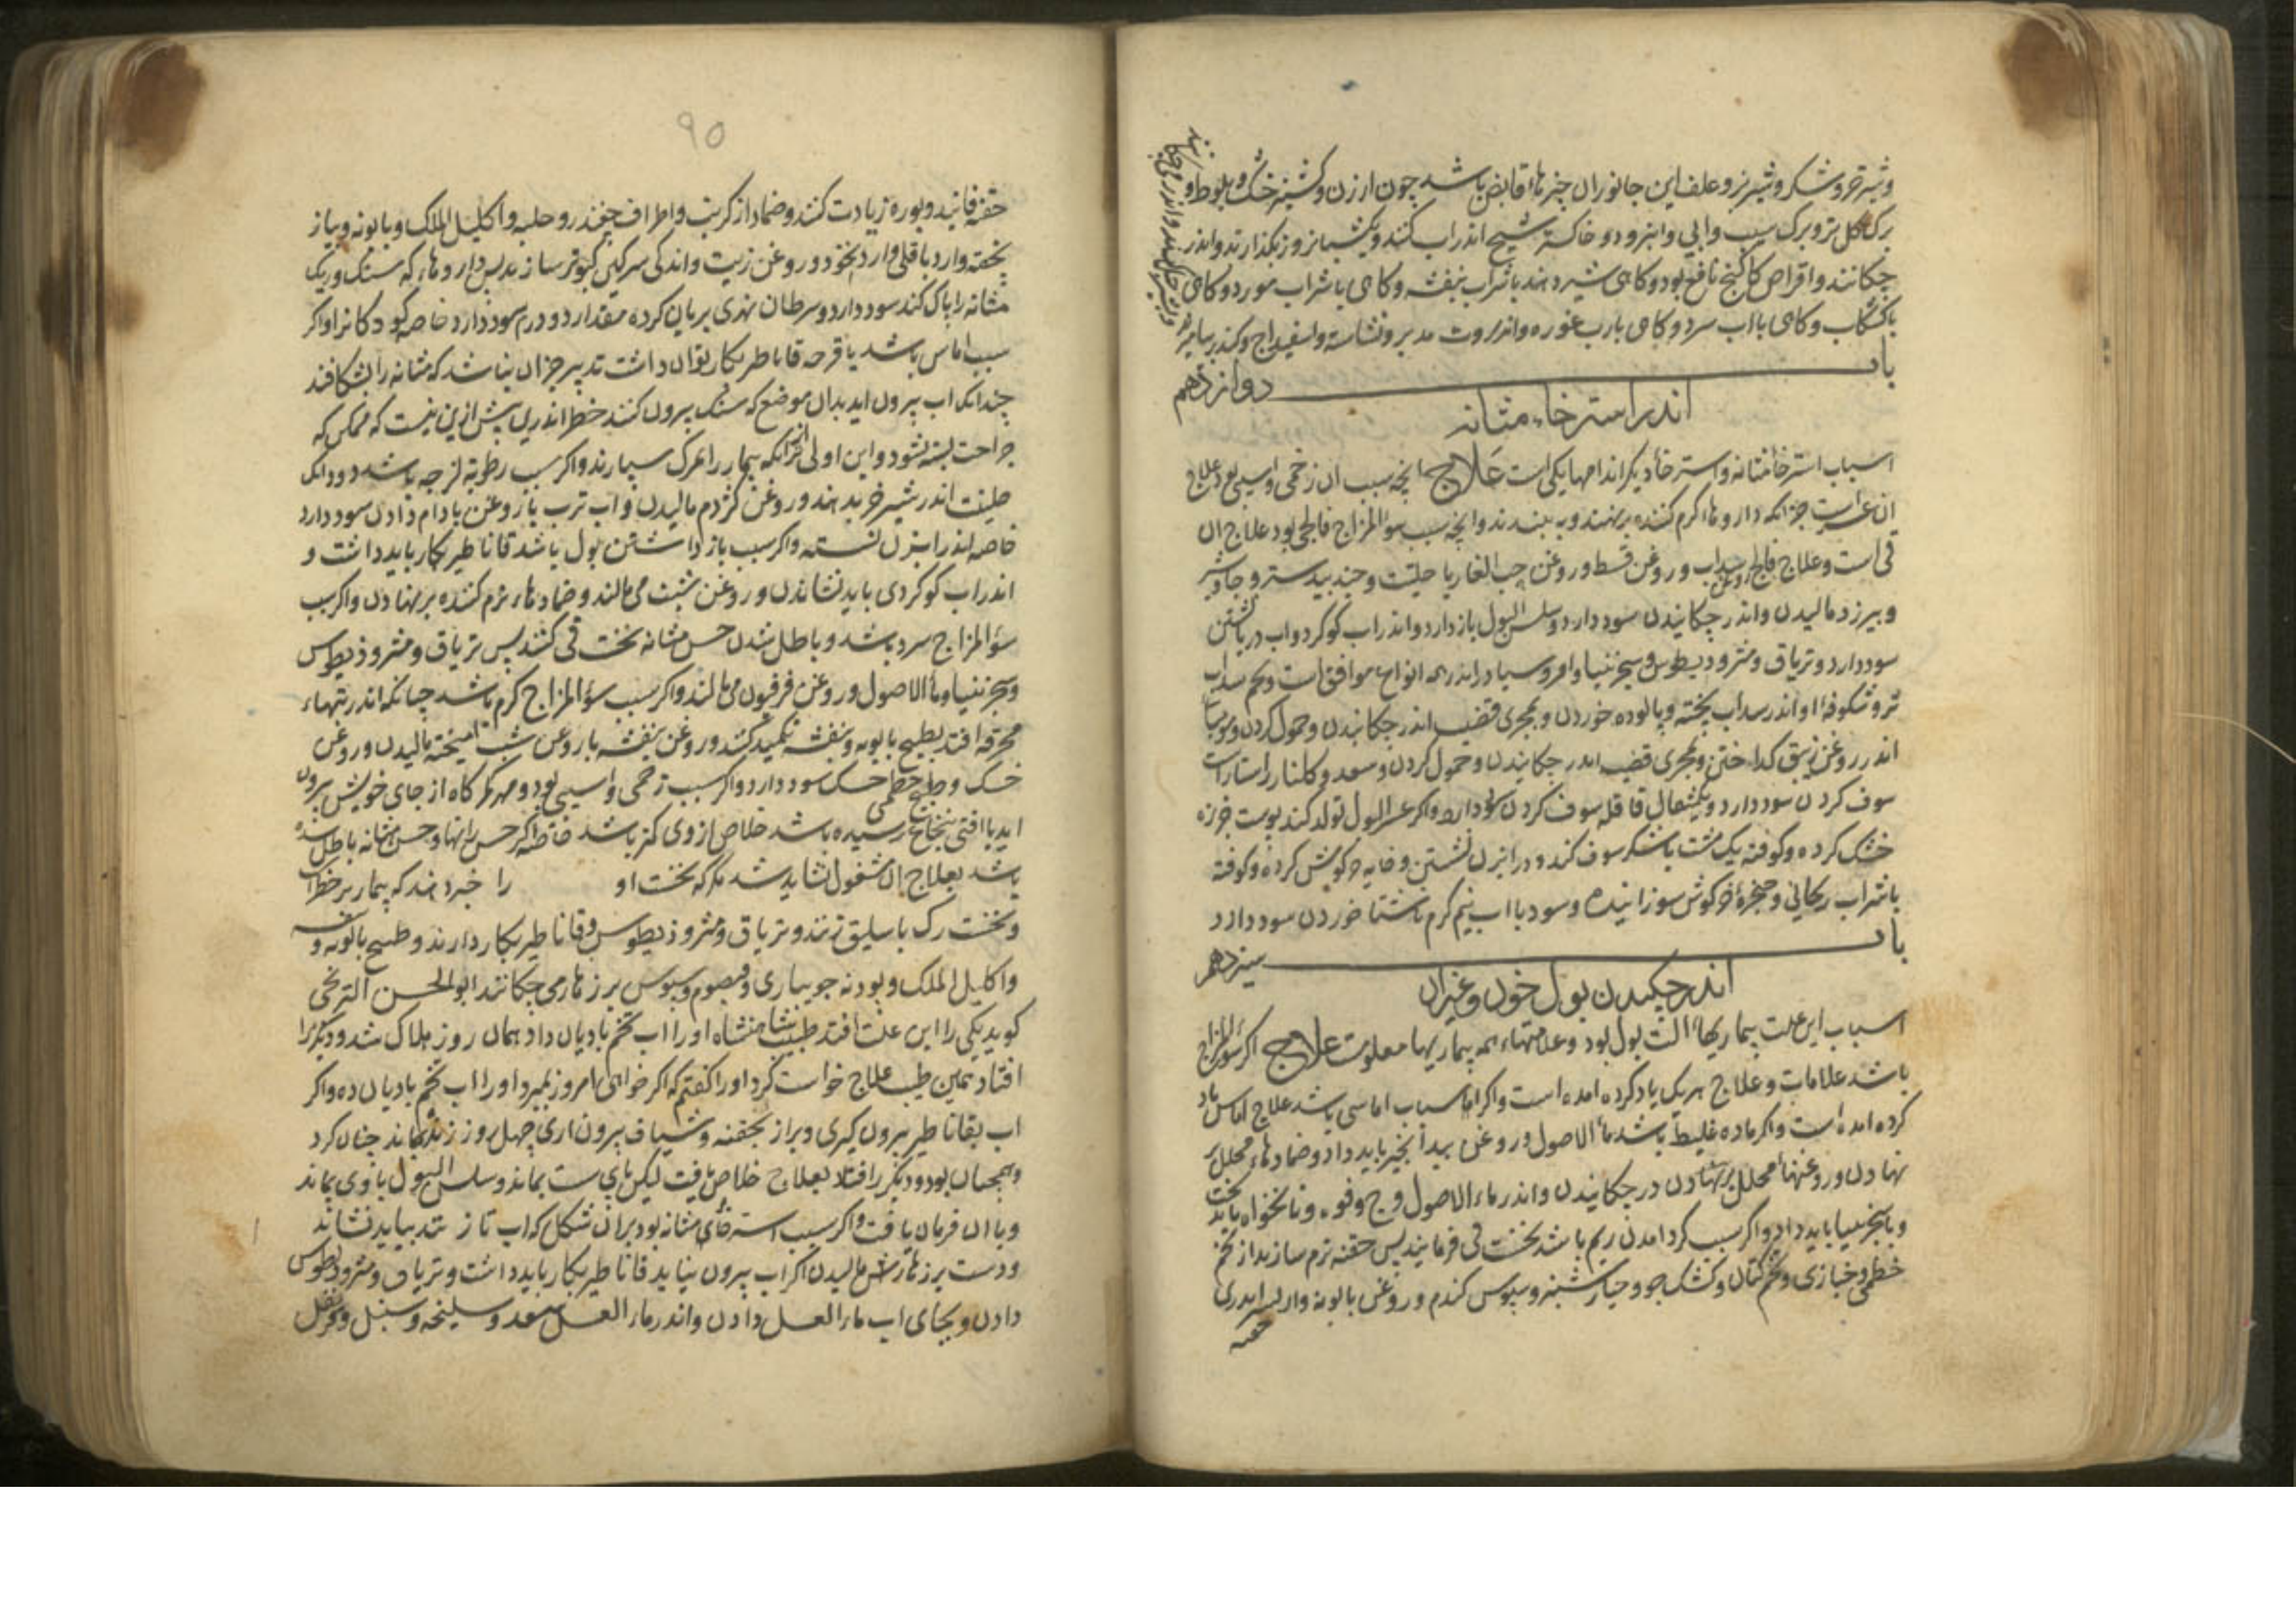 و شیر خر و شکر و شیر بز و علف این جانوران چیزهاء قابض باشد چون ارزن و کشنیز خشک و بلوط و
برک کل تر و برک سیب و ابی و امرود و خاکستر شیح اندر اب کنند و یکشبانروز بکذارند و اندر
چکانند و اقراص کاکنج نافع بود و کاهی شیر دهند با شراب بنفشه و کاهی با شراب مورد و کاهی
با کشکاب و کاهی با اب سرد و کاهی با رب غوره و انزروت مدبر و نشاسته و اسفیداج و کندر
باب دوازدهم
اندر استرخاء مثانه
اسباب استرخا مثانه و استرخا دیکر اندامها یکی است علاج انچه سبب ان زخمی و اسیبی بود علاج
ان جز انکه داروهاء کرم کننده برنهند و ببندند و انچه سبب سؤ المزاج فالجی بود علاج ان
قی است و علاج فالج و روغن سداب و روغن قسط و روغن حب الغار با حلتیت و جندبیدستر و جاوشیر
و بیرزد مالیدن و اندر چکانیدن سود دارد و سلس البول باز دارد و اندر اب کوکرد و اب دریا نشستن
سود دارد و تریاق و مثرودیطوس و سجزنیا و امروسیا اندر همه انواع موافق است و تخم سداب
تر و شکوفه او اندر سداب پخته و پالوده خوردن و بمجری قضیب اندر چکانیدن و حمول کردن و مومیا
اندر روغن زنبق کداختن و بمجری قضیب اندر چکانیدن و حمول کردن و سعد و کلنار راستاراست
سوف کردن سود دارد و یکمثقال قاقله سوف کردن سود دارد و اکر عسر البول تولد کند پوست خربزه
خشک کرده و کوفته یک مشت با شکر سوف کند و در ابزن نشستن و خایه خرکوش خشک کرده و کوفته
با شراب ریحانی و حنجرهٔ خرکوش سوزانیده و سوده با اب نیم کرم ناشتا خوردن سود دارد
باب سیزدهم
اندر چکیدن بول خون و غیر ان
اسباب این علت بیماریهاء الت بول بود و علامتهاء همه بیماریها معلومست علاج اکر سؤ المزاج
باشد علامات و علاج هر یک یاد کرده امده است و اکر اسباب اماسی باشد علاج اماس یاد
کرده امده است و اکر ماده غلیظ باشد ماء الاصول و روغن بیدانجیر باید داد و ضمادهاء محلل بر
نهادن و روغنهاء محلل برنهادن در چکانیدن و اندر ماء الاصول وج و فوه و نانخواه باید پخت
و با سجزنیا باید داد و اکر سبب کرد امدن ریم باشد نخست قی فرمایند پس حقنه نرم سازند از تخم
خطمی و خبازی و تخم کتان و کشک جو و خیارشنبر و سبوس کندم و روغن بابونه و از پس اندری
حقنه
۹۵
حقنه فانید و بوره زیادت کنند و ضماد از کرنب و اطراف چغندر و حلبه و اکلیل الملک و بابونه و پیاز
پخته و ارد باقلی و ارد نخود و روغن زیت و اندکی سرکین کبوتر سازند پس داروهاء که سنک و ریک
مثانه را پاک کند سود دارد و سرطان نهری بریان کرده مقدار دو درم سود دارد خاصه کودکانرا و اکر
سبب اماس باشد یا قرحه قاثاطیر بکار نتوان داشت تدبیر جز ان نباشد که مثانه را بشکافند
چندانک اب بیرون اید بدان موضع که سنک بیرون کنند خطر اندرین بیش ازین نیست که ممکن که
جراحت بسته نشود و این اولی تر از انکه بیمار را بمرک سپارند و اکر سبب رطوبة لزجه باشد دو دانک
حلتیت اندر شیر خر بدهند و روغن کژدم مالیدن و اب ترب با روغن بادام دادن سود دارد
خاصه اندر ابزن نشسته و اکر سبب باز داشتن بول باشد قاثاطیر بکار باید داشت و
اندر اب کوکردی باید نشاندن و روغن شبت می مالند و ضمادهاء نرم کننده برنهادن و اکر سبب
سؤ المزاج سرد باشد و باطل شدن حس مثانه نخست قی کنند پس تریاق و مثروذیطوس
و سجزنیا و ماء الاصول و روغن فرفیون می مالند و اکر سبب سؤ المزاج کرم باشد چنانکه اندر تبهاء
محرقه افتد بطبیخ بابونه و بنفشه تکمید کنند و روغن بنفشه با روغن شبت امیخته مالیدن و روغن
خسک و طبیخ خطمی خسک سود دارد و اکر سبب زخمی و اسیبی بود و مهره از جای خویش بیرون
اید یا افتی بنخاع رسیده باشد خلاص از وی کمتر باشد خاصه اکر حس رانها و حس مثانه باطل شده
باشد بعلاج ان مشغول نشاید شد مکر که نخست او را خبر دهند که بیمار بر خطر است
و نخست رک باسلیق زنند و تریاق و مثروذیطوس و قاثاطیر بکار دارند و طبیخ بابونه و
و اکلیل الملک و پودنه جویباری و قیصوم و سبوس بر زهار می چکانند ابو الحسن الترنجی
کوید یکی را این علت افتد طبیب شاهنشاه او را اب تخم بادیان داد همان روز هلاک شد و دیکر را
افتاد همین طبیب علاج خواست کرد او را کفتم که اکر خواهی امروز بمیرد او را اب تخم بادیان ده و اکر
اب بقاثاطیر بیرون کیری و براز بحقنه و شیاف بیرون اری چهل روز زنده بماند چنان کرد
و همچنان بود و دیکر را افتاد بعلاج خلاص یافت لیکن پای سست بماند و سلس البول با وی بماند
و با ان فرمان یافت و اکر سبب استرخای مثانه بود بران شکل که اب تازند بباید نشاند
و دست بر زهارش مالیدن اکر اب بیرون نیاید قاثاطیر بکار باید داشت و تریاق و مثرودیطوس
دادن و بجای اب ماء العسل دادن و اندر ماء العسل سعد و سلیخه و سنبل و قرنفل